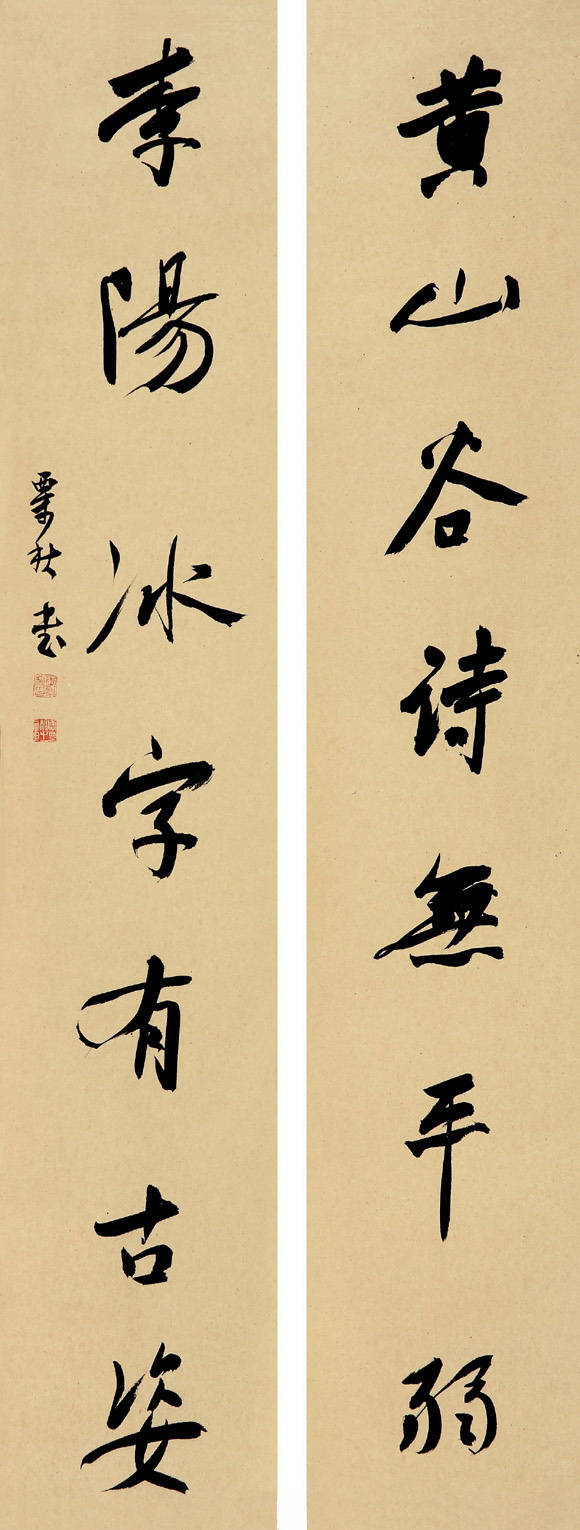 黄山谷诗無平弱
李陽冰字有古姿
粟秋书